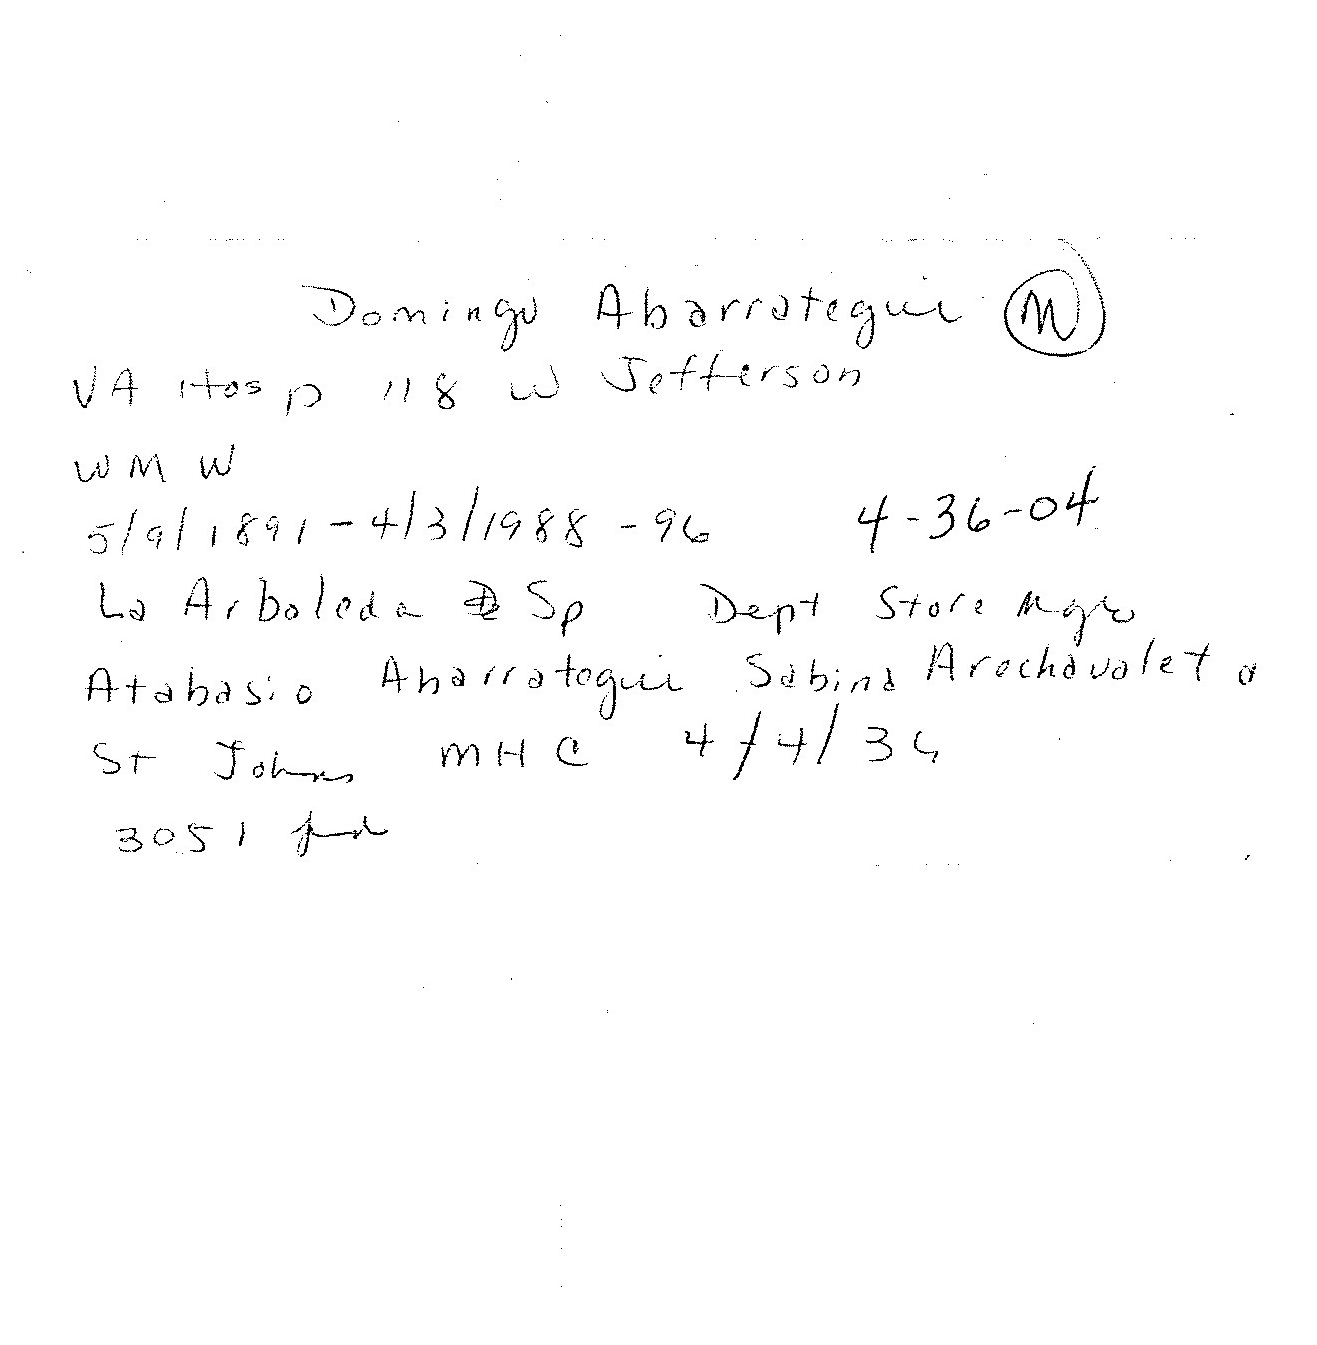 Domingo Abarrategui M
VA Hosp 118 W Jefferson
W M W
5/9/1891 - 4/3/1988 - 96 4-36-04
La Arboleda Sp Dept Store Mgr
Atabasio Abarrategui Sabina Arechavaleta
St Johns MHC 4/4/36
3051 pd